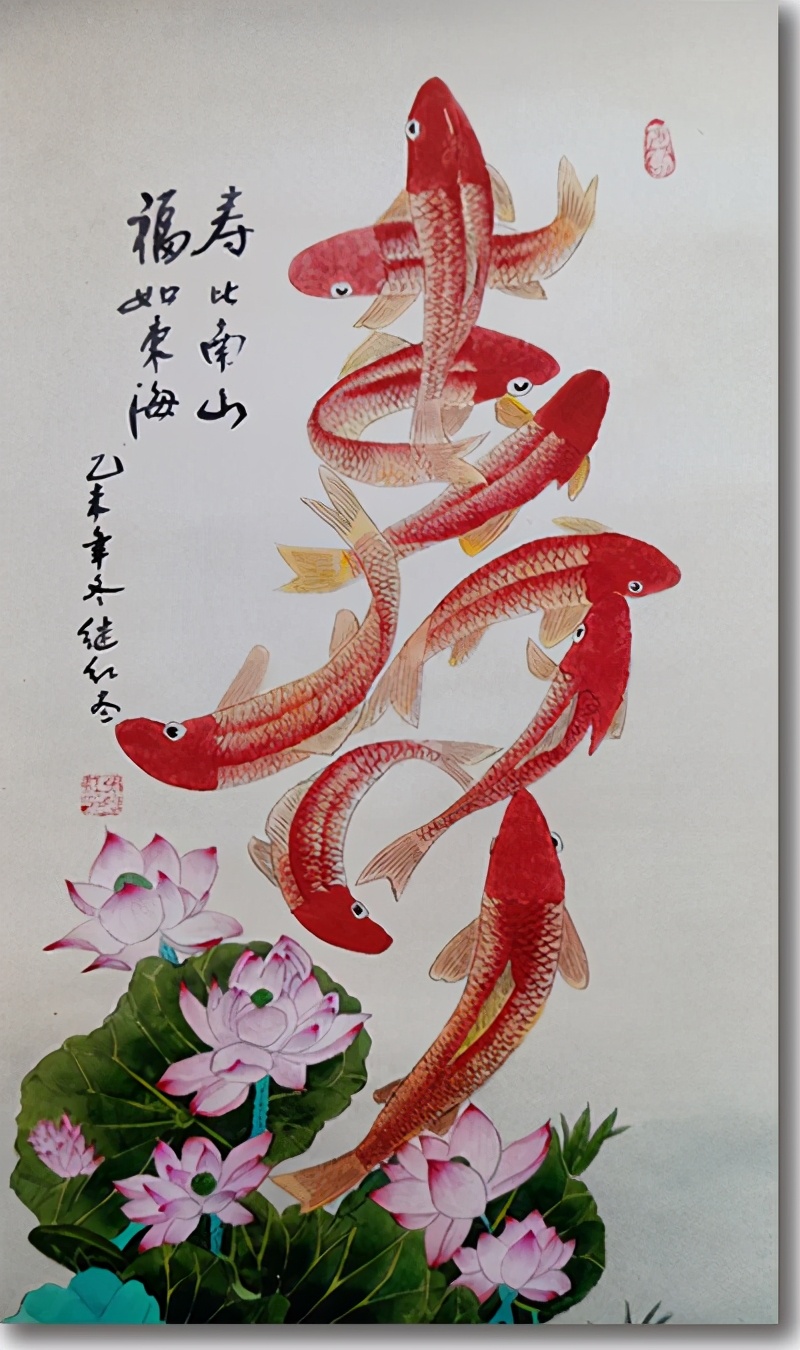 寿比南山
福如東海
乙未年冬继红冬